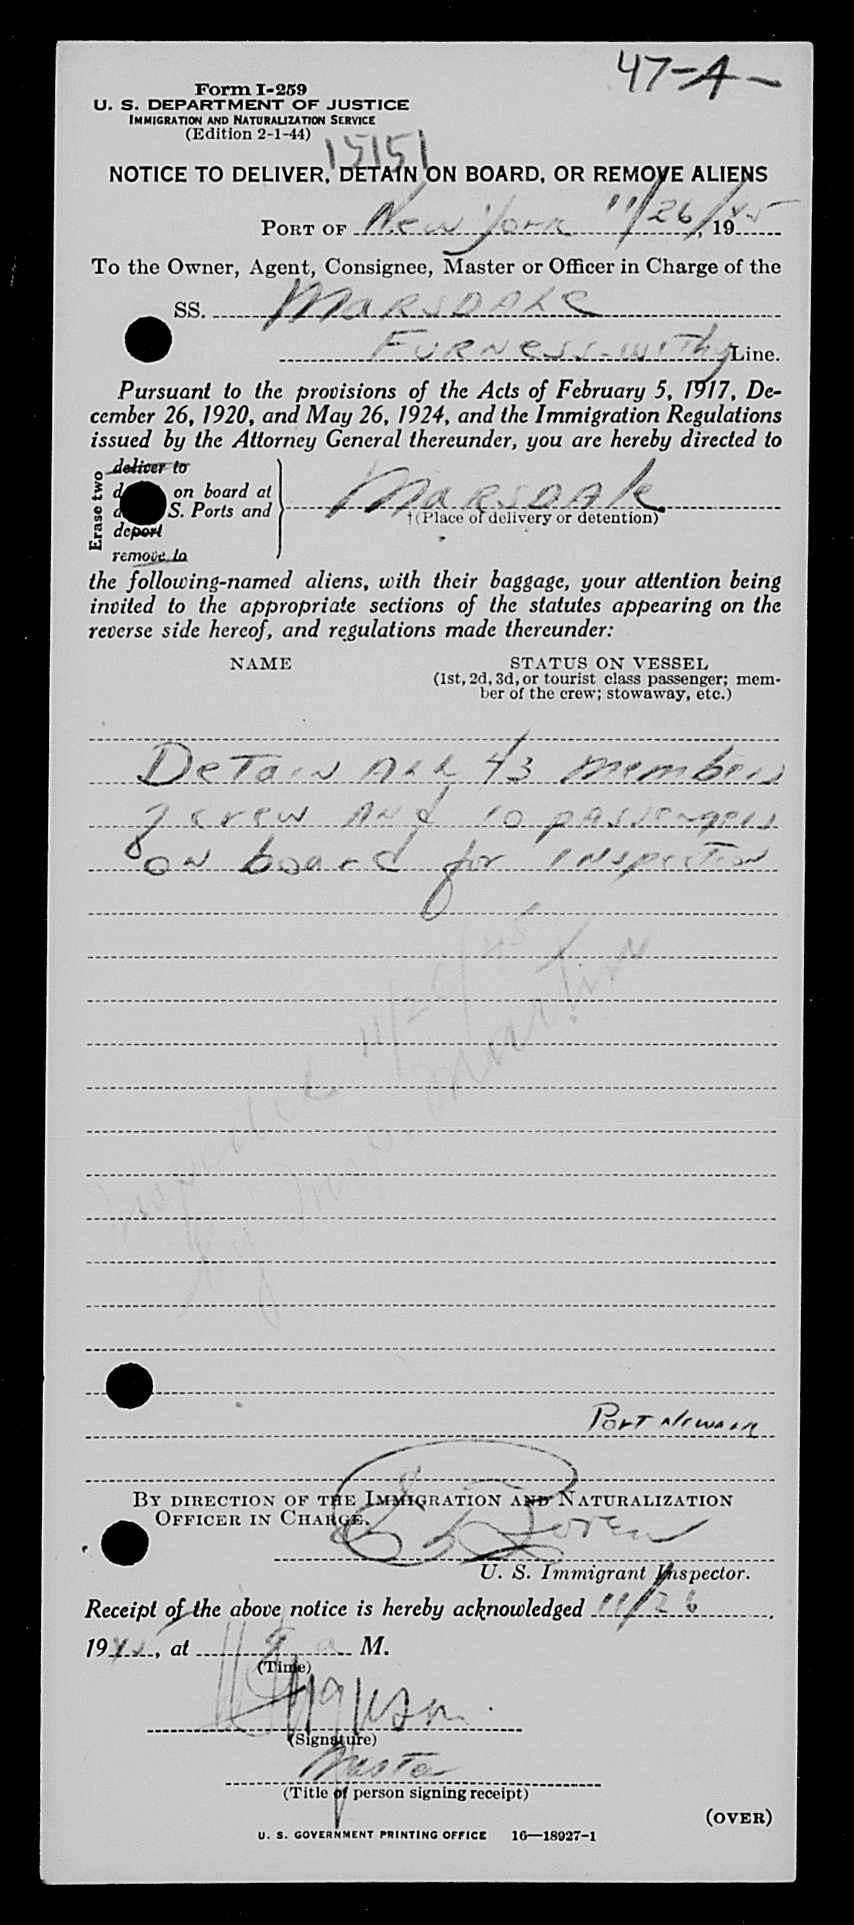 47-A-
Form I-259
U. S. DEPARTMENT OF JUSTICE
IMMIGRATION AND NATURALIZATION SERVICE
(Edition 2-1-44)
15151
NOTICE TO DELIVER, DETAIN ON BOARD, OR REMOVE ALIENS
PORT OF New York 11/26/, 1945
To the Owner, Agent, Consignee, Master or Officer in Charge of the
SS. Marsdale
Furness-Withy Line.
Pursuant to the provisions of the Acts of February 5, 1917, De-
cember 26, 1920, and May 26, 1924, and the Immigration Regulations
issued by the Attorney General thereunder, you are hereby directed to
Erase two
deliver to
on board at
S. Ports and
deport
remove to
Marsdale
†(Place of delivery or detention)
the following-named aliens, with their baggage, your attention being
invited to the appropriate sections of the statutes appearing on the
reverse side hereof, and regulations made thereunder:
NAME STATUS ON VESSEL
(1st, 2d, 3d, or tourist class passenger; mem-
ber of the crew; stowaway, etc.)
Detain all 43 members
of crew and 10 passengers
on board for inspection
Inspected 11/26/45
by Insp. Martin
Port Newark
BY DIRECTION OF THE IMMIGRATION AND NATURALIZATION
OFFICER IN CHARGE.
U. S. Immigrant Inspector.
Receipt of the above notice is hereby acknowledged 11/26,
1945, at a M.
(Time)
(Signature)
Master
(Title of person signing receipt)
(OVER)
U. S. GOVERNMENT PRINTING OFFICE 16—18927-1